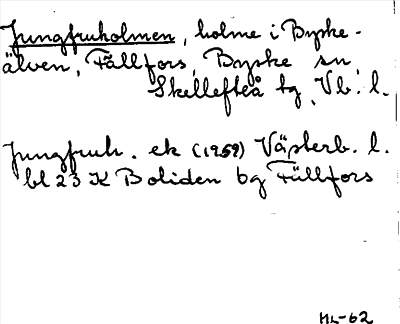 Jungfruholmen, holme i Byske-
älven, Fällfors, Byske sn,
Skellefteå tg, Vb. l.
Jungfruh. ek (1959) Västerb. l.
bl 23 K Boliden bg Fällfors
HL-62